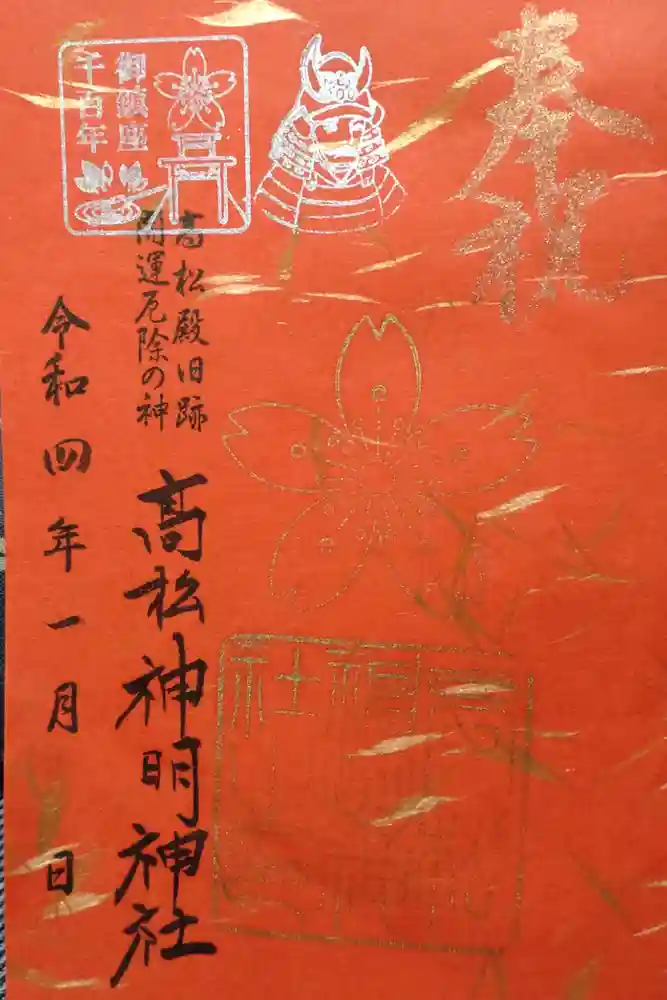 奉祝
御鎮座
千百年
高松殿旧跡
開運厄除の神
高松神明神社
令和四年一月 日